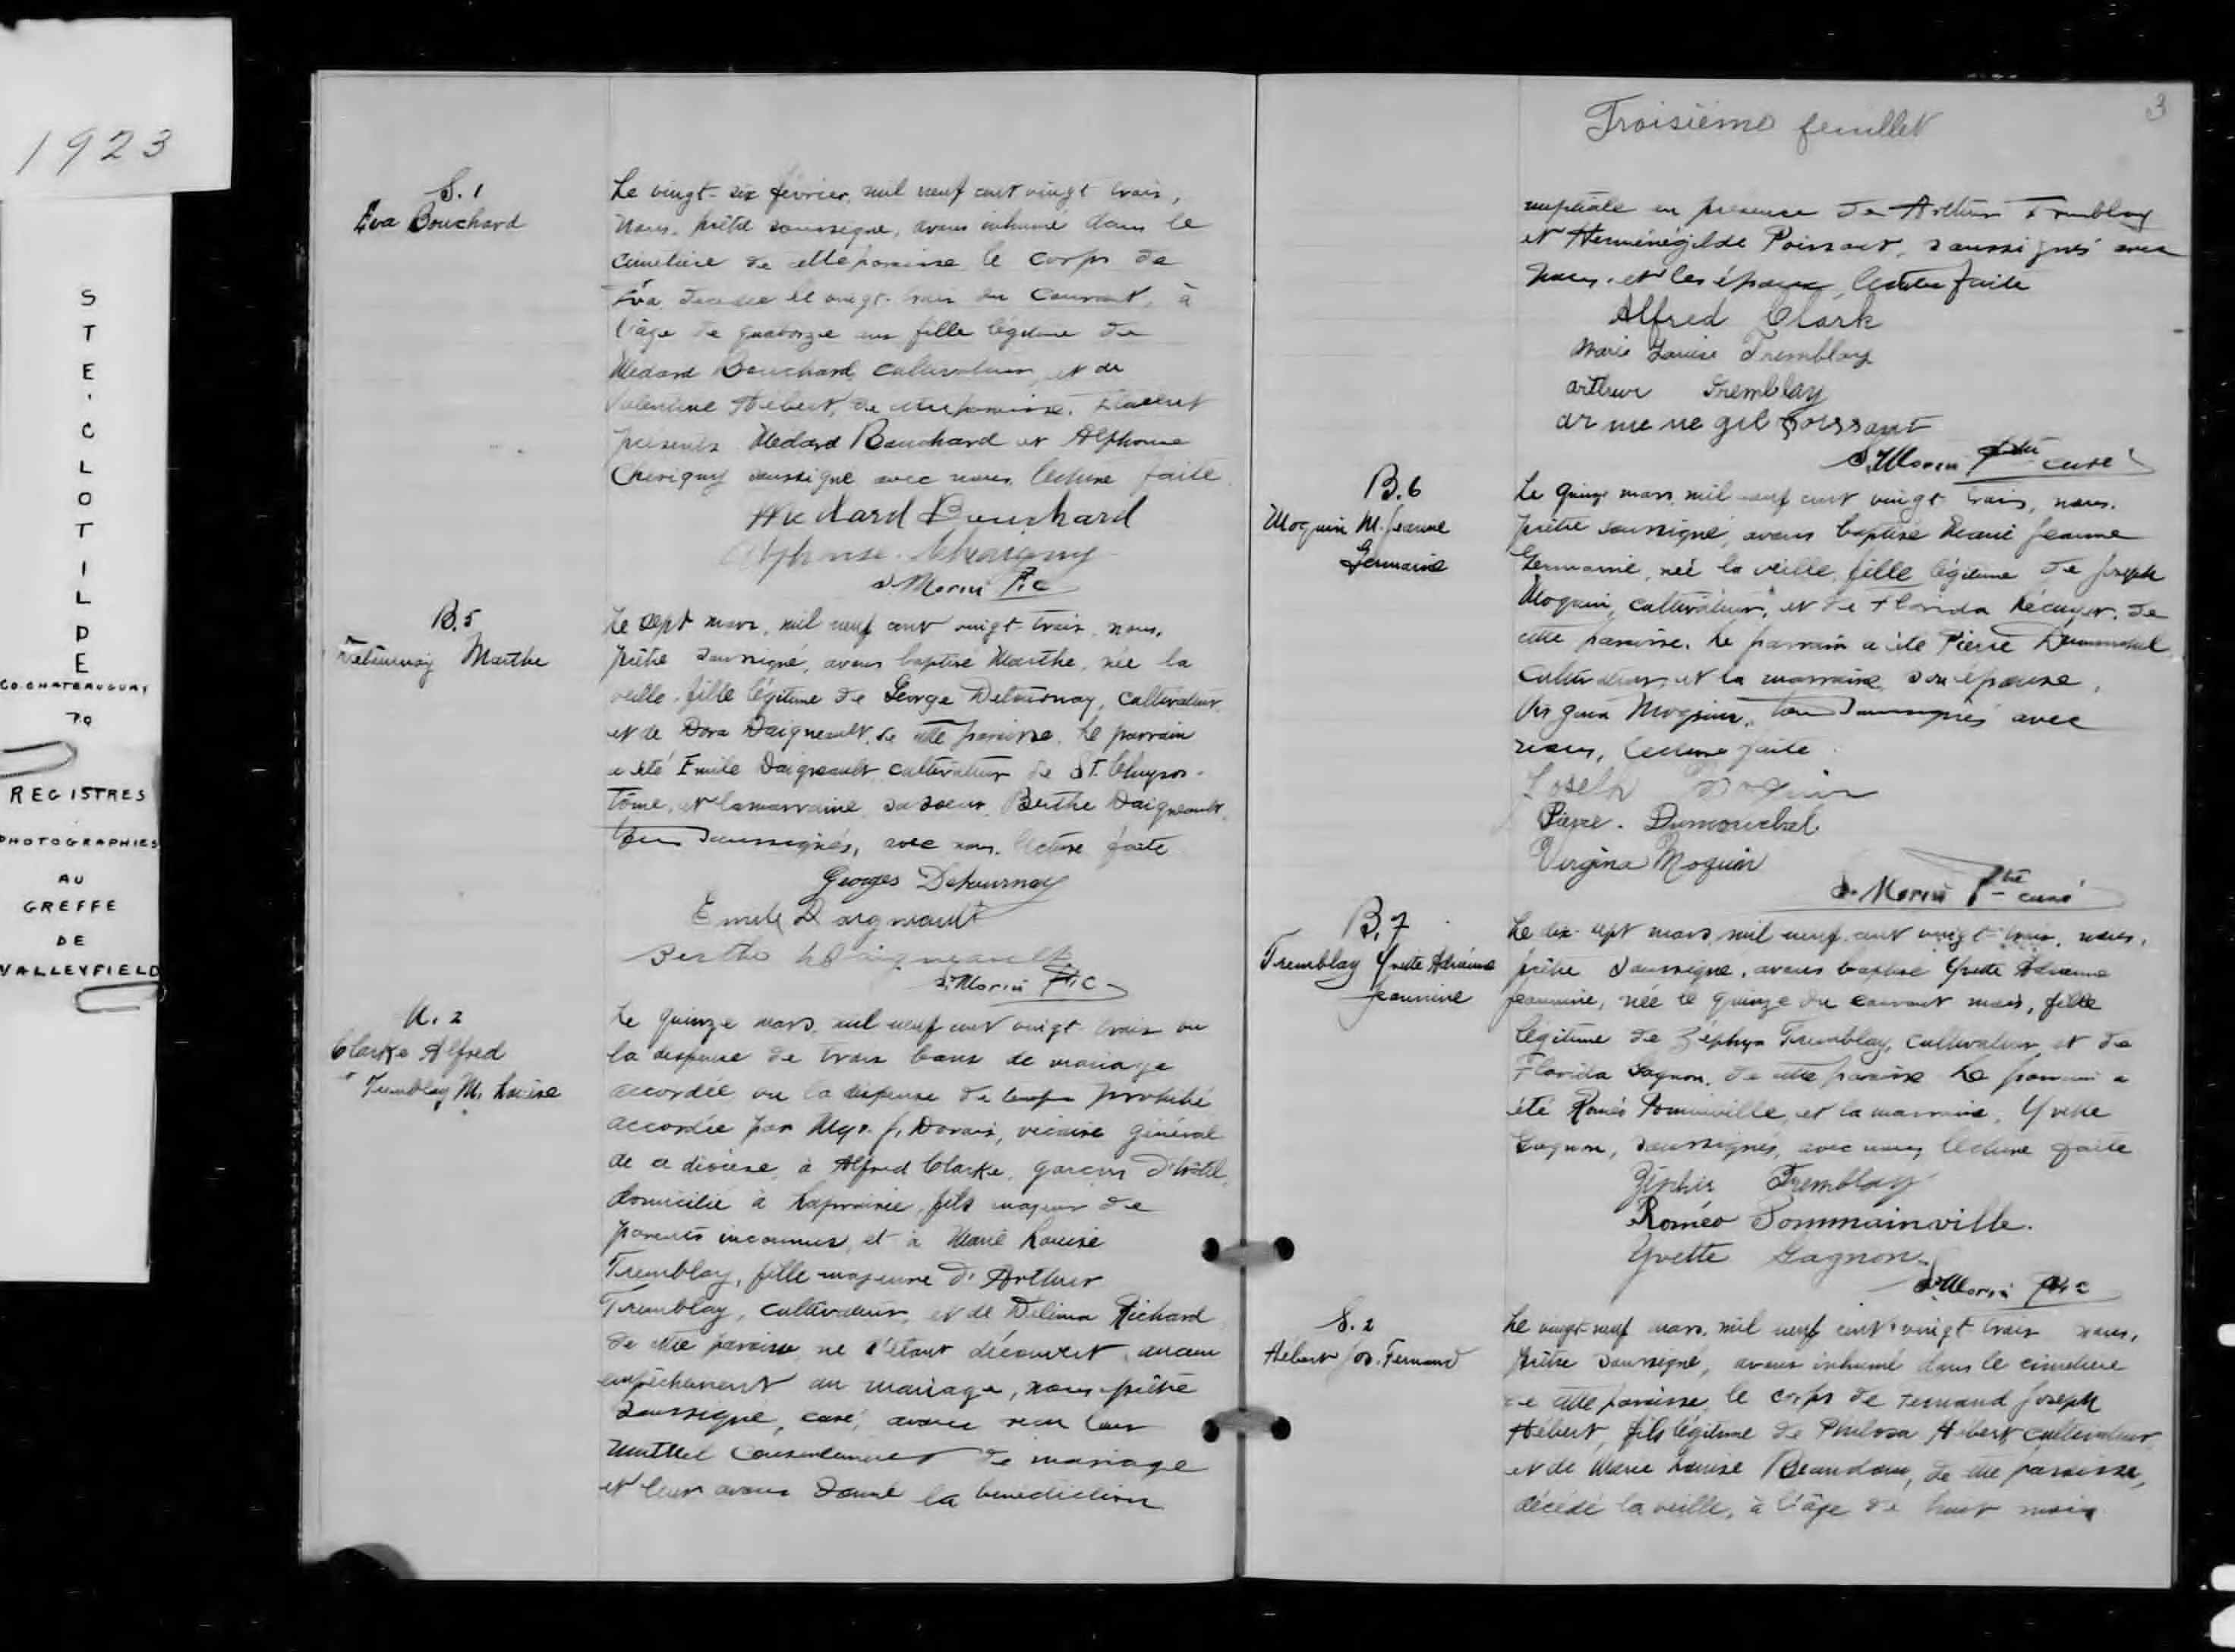 1923
STE. CLOTILDE
CO. CHATEAUGUAY
P.Q
REGISTRES
PHOTOGRAPHIES
AU
GREFFE
DE
VALLEYFIELD
S. 1
Eva Bouchard
Le vingt-six février, mil neuf cent vingt trois,
nous, prêtre soussigné, avons inhumé dans le
cimetière de cette paroisse le corps de
Eva décédée le vingt-trois du courant, à
l'âge de quatorze ans fille légitime de
Médard Bouchard cultivateur, et de
Valentine Hébert, de cette paroisse. Etaient
présents Médard Bouchard et Alphonse
Chevigny soussigné avec nous, lecture faite.
Medard Bouchard
Alphonse Chevigny
Morin P.c
B. 5
Detournay Marthe
Le sept mars, mil neuf cent vingt-trois, nous,
prêtre soussigné, avons baptisé Marthe, née la
veille, fille légitime de George Detournay, cultivateur
et de Dora Daigneault, de cette paroisse. Le parrain
a été Emile Daigneault cultivateur de St. Chrysos-
tôme, et la marraine sa soeur Berthe Daigneault,
soussignés, avec nous, lecture faite
Georges Detournay
Emile Daigneault
Berthe Daigneault
Morin P.c
M. 2
Clarke Alfred
Tremblay M. Louise
Le quinze mars, mil neuf cent vingt trois vu
la dispense de trois bans de mariage
accordée vu la dispense de temps prohibé
accordée par Mgr. J. Dorais, vicaire général
de ce diocèse, à Alfred Clarke, garçon d'hôtel,
domicilié à Laprairie, fils majeur de
parents inconnus, et à Marie Louise
Tremblay, fille majeure d'Arthur
Tremblay, cultivateur, et de Délima Richard
de cette paroisse, ne s'étant découvert, aucun
empêchement au mariage, nous, prêtre
soussigné, curé, avons reçu leur
mutuel consentement de mariage
et leur avons donné la bénédiction
Troisième feuillet
3
nuptiale en présence de Arthur Tremblay
et Herménégilde Poissant, soussignés avec
nous, et les époux, lecture faite
Alfred Clark
Marie Louise Tremblay
arthur Tremblay
ar me ne gil poissant
Morin Ptre curé
B. 6
Moquin M. Jeanne
Germaine
Le quinze mars, mil neuf cent vingt trois, nous,
prêtre soussigné, avons baptisé Marie Jeanne
Germaine, née la veille, fille légitime de Joseph
Moquin, cultivateur, et de Florida Lécuyer, de
cette paroisse. Le parrain a été Pierre Dumouchel
cultivateur, et la marraine, son épouse,
Virginia Moquin, soussignés avec
nous, lecture faite.
Joseph Moquin
Pierre. Dumouchel.
Virgina Moquin
Morin Ptre curé
B. 7
Tremblay Yvette Adrienne
Jeannine
Le dix-sept mars, mil neuf cent vingt trois, nous,
prêtre soussigné, avons baptisé Yvette Adrienne
Jeannine, née le quinze du courant mois, fille
légitime de Zéphyr Tremblay, cultivateur, et de
Florida Gagnon, de cette paroisse Le parrain a
été Roméo Pominville, et la marraine, Yvette
Gagnon, soussignés, avec nous, lecture faite
Zéphir Tremblay
Roméo Pommainville.
Yvette Gagnon
Morin Ptre c
S. 2
Hébert Jos. Fernand
Le vingt-neuf mars, mil neuf cent vingt trois nous,
prêtre soussigné, avons inhumé dans le cimetière
de cette paroisse, le corps de Fernand Joseph
Hébert, fils légitime de Hébert cultivateur
et de Marie Louise Beaudin, de cette paroisse,
décédé la veille, à l'âge de huit mois